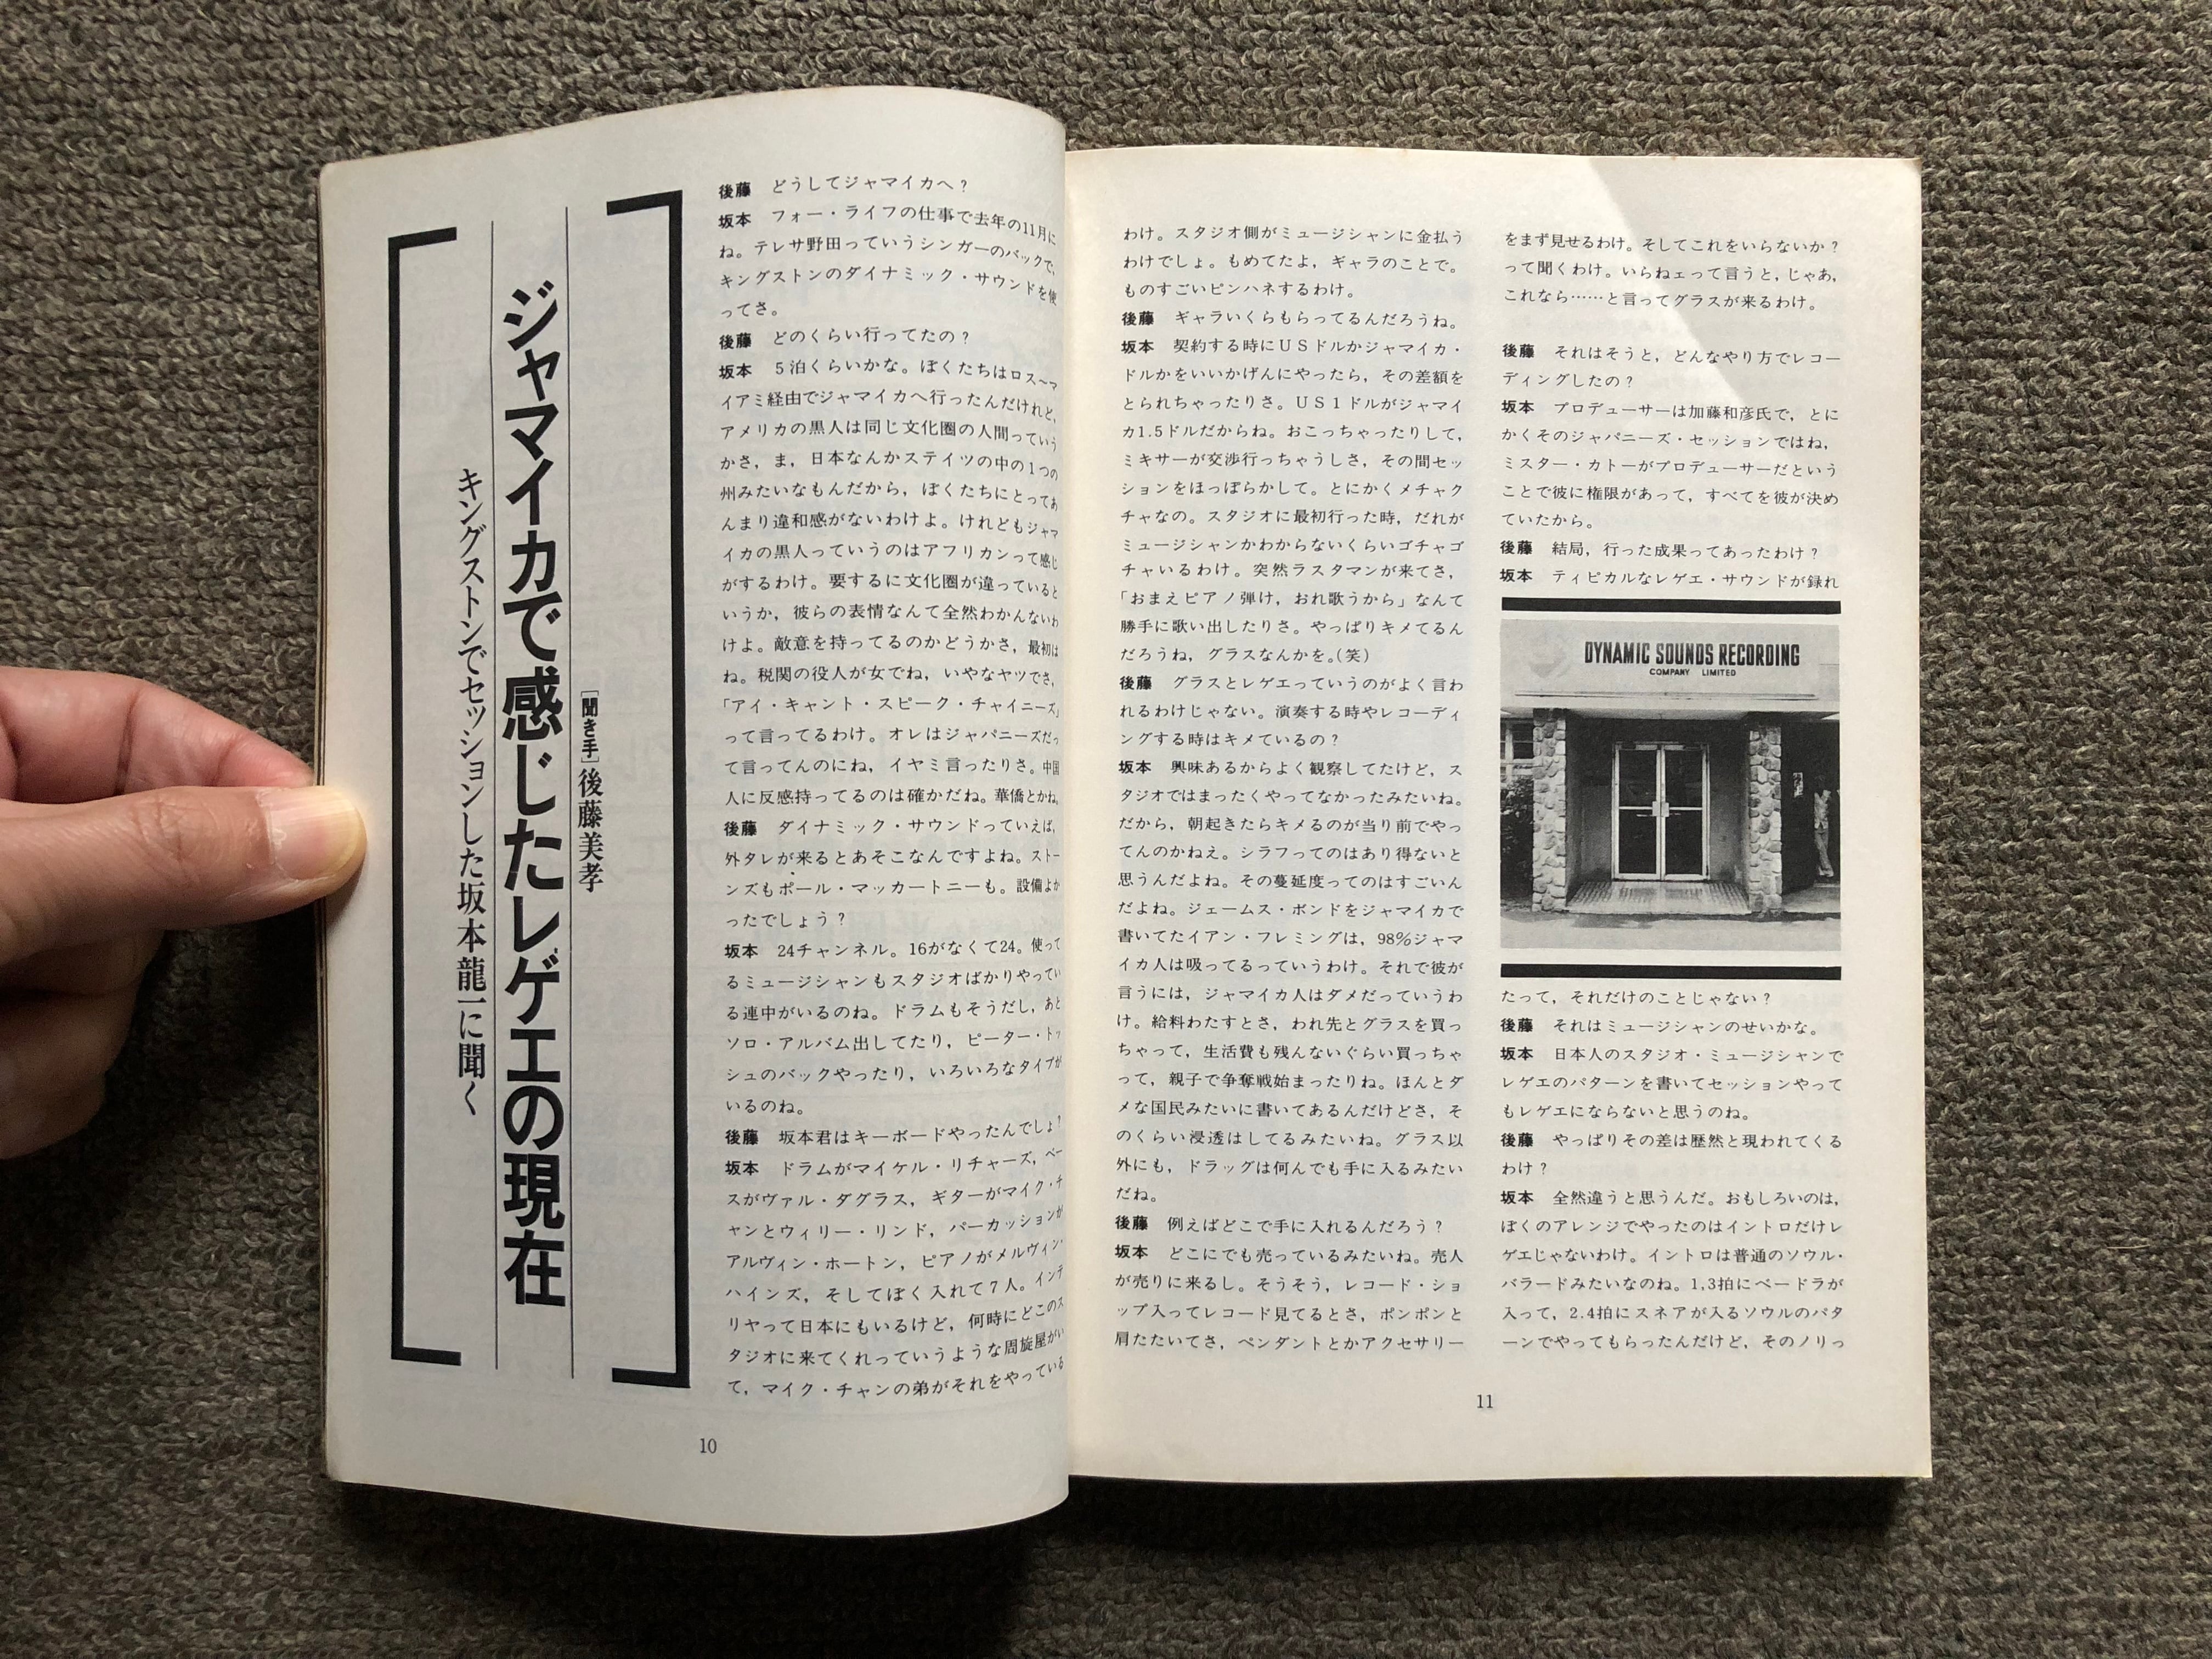 ジャマイカで感じたレゲエの現在
キングストンでセッションした坂本龍一に聞く
[聞き手]後藤美孝
後藤 どうしてジャマイカへ？
坂本 フォー・ライフの仕事で去年の11月に
ね。テレサ野田っていうシンガーのバックで，
キングストンのダイナミック・サウンドを使
ってさ。
後藤 どのくらい行ってたの？
坂本 5泊くらいかな。ぼくたちはロス〜マ
イアミ経由でジャマイカへ行ったんだけれど，
アメリカの黒人は同じ文化圏の人間っていう
かさ，ま，日本なんかステイツの中の1つの
州みたいなもんだから，ぼくたちにとってあ
んまり違和感がないわけよ。けれどもジャマ
イカの黒人っていうのはアフリカンって感じ
がするわけ。要するに文化圏が違っていると
いうか，彼らの表情なんて全然わかんないわ
けよ。敵意を持ってるのかどうかさ，最初は
ね。税関の役人が女でね，いやなヤツでさ，
「アイ・キャント・スピーク・チャイニーズ」
って言ってるわけ。オレはジャパニーズだっ
て言ってんのにね，イヤミ言ったりさ。中国
人に反感持ってるのは確かだね。華僑とかね。
後藤 ダイナミック・サウンドっていえば，
外タレが来るとあそこなんですよね。ストー
ンズもポール・マッカートニーも。設備よか
ったでしょう？
坂本 24チャンネル。16がなくて24。使って
るミュージシャンもスタジオばかりやってい
る連中がいるのね。ドラムもそうだし，あと
ソロ・アルバム出してたり，ピーター・トッ
シュのバックやったり，いろいろなタイプが
いるのね。
後藤 坂本君はキーボードやったんでしょ？
坂本 ドラムがマイケル・リチャーズ，ベー
スがヴァル・ダグラス，ギターがマイク・チ
ャンとウィリー・リンド，パーカッションが
アルヴィン・ホートン，ピアノがメルヴィン・
ハインズ，そしてぼく入れて7人。インテ
リヤって日本にもいるけど，何時にどこのス
タジオに来てくれっていうような周旋屋がい
て，マイク・チャンの弟がそれをやっている
10
わけ。スタジオ側がミュージシャンに金払う
わけでしょ。もめてたよ，ギャラのことで。
ものすごいピンハネするわけ。
後藤 ギャラいくらもらってるんだろうね。
坂本 契約する時にUSドルかジャマイカ・
ドルかをいいかげんにやったら，その差額を
とられちゃったりさ。US1ドルがジャマイ
カ1.5ドルだからね。おこっちゃったりして，
ミキサーが交渉行っちゃうしさ，その間セッ
ションをほっぽらかして。とにかくメチャク
チャなの。スタジオに最初行った時，だれが
ミュージシャンかわからないくらいゴチャゴ
チャいるわけ。突然ラスタマンが来てさ，
「おまえピアノ弾け，おれ歌うから」なんて
勝手に歌い出したりさ。やっぱりキメてるん
だろうね，グラスなんかを。（笑）
後藤 グラスとレゲエっていうのがよく言わ
れるわけじゃない。演奏する時やレコーディ
ングする時はキメているの？
坂本 興味あるからよく観察してたけど，ス
タジオではまったくやってなかったみたいね。
だから，朝起きたらキメるのが当り前でやっ
てんのかねえ。シラフってのはあり得ないと
思うんだよね。その蔓延度ってのはすごいん
だよね。ジェームス・ボンドをジャマイカで
書いてたイアン・フレミングは，98％ジャマ
イカ人は吸ってるっていうわけ。それで彼が
言うには，ジャマイカ人はダメだっていうわ
け。給料わたすとさ，われ先とグラスを買っ
ちゃって，生活費も残んないぐらい買っちゃ
って，親子で争奪戦始まったりね。ほんとダ
メな国民みたいに書いてあるんだけどさ，そ
のくらい浸透はしてるみたいね。グラス以
外にも，ドラッグは何んでも手に入るみたい
だね。
後藤 例えばどこで手に入れるんだろう？
坂本 どこにでも売っているみたいね。売人
が売りに来るし。そうそう，レコード・ショ
ップ入ってレコード見てるとさ，ポンポンと
肩たたいてさ，ペンダントとかアクセサリー
をまず見せるわけ。そしてこれをいらないか？
って聞くわけ。いらねェって言うと，じゃあ，
これなら……と言ってグラスが来るわけ。
後藤 それはそうと，どんなやり方でレコー
ディングしたの？
坂本 プロデューサーは加藤和彦氏で，とに
かくそのジャパニーズ・セッションではね，
ミスター・カトーがプロデューサーだという
ことで彼に権限があって，すべてを彼が決め
ていたから。
後藤 結局，行った成果ってあったわけ？
坂本 ティピカルなレゲエ・サウンドが録れ
DYNAMIC SOUNDS RECORDING
COMPANY LIMITED
たって，それだけのことじゃない？
後藤 それはミュージシャンのせいかな。
坂本 日本人のスタジオ・ミュージシャンで
レゲエのパターンを書いてセッションやって
もレゲエにならないと思うのね。
後藤 やっぱりその差は歴然と現われてくる
わけ？
坂本 全然違うと思うんだ。おもしろいのは，
ぼくのアレンジでやったのはイントロだけレ
ゲエじゃないわけ。イントロは普通のソウル・
バラードみたいなのね。1,3拍にベードラが
入って，2.4拍にスネアが入るソウルのパタ
ーンでやってもらったんだけど，そのノリっ
11